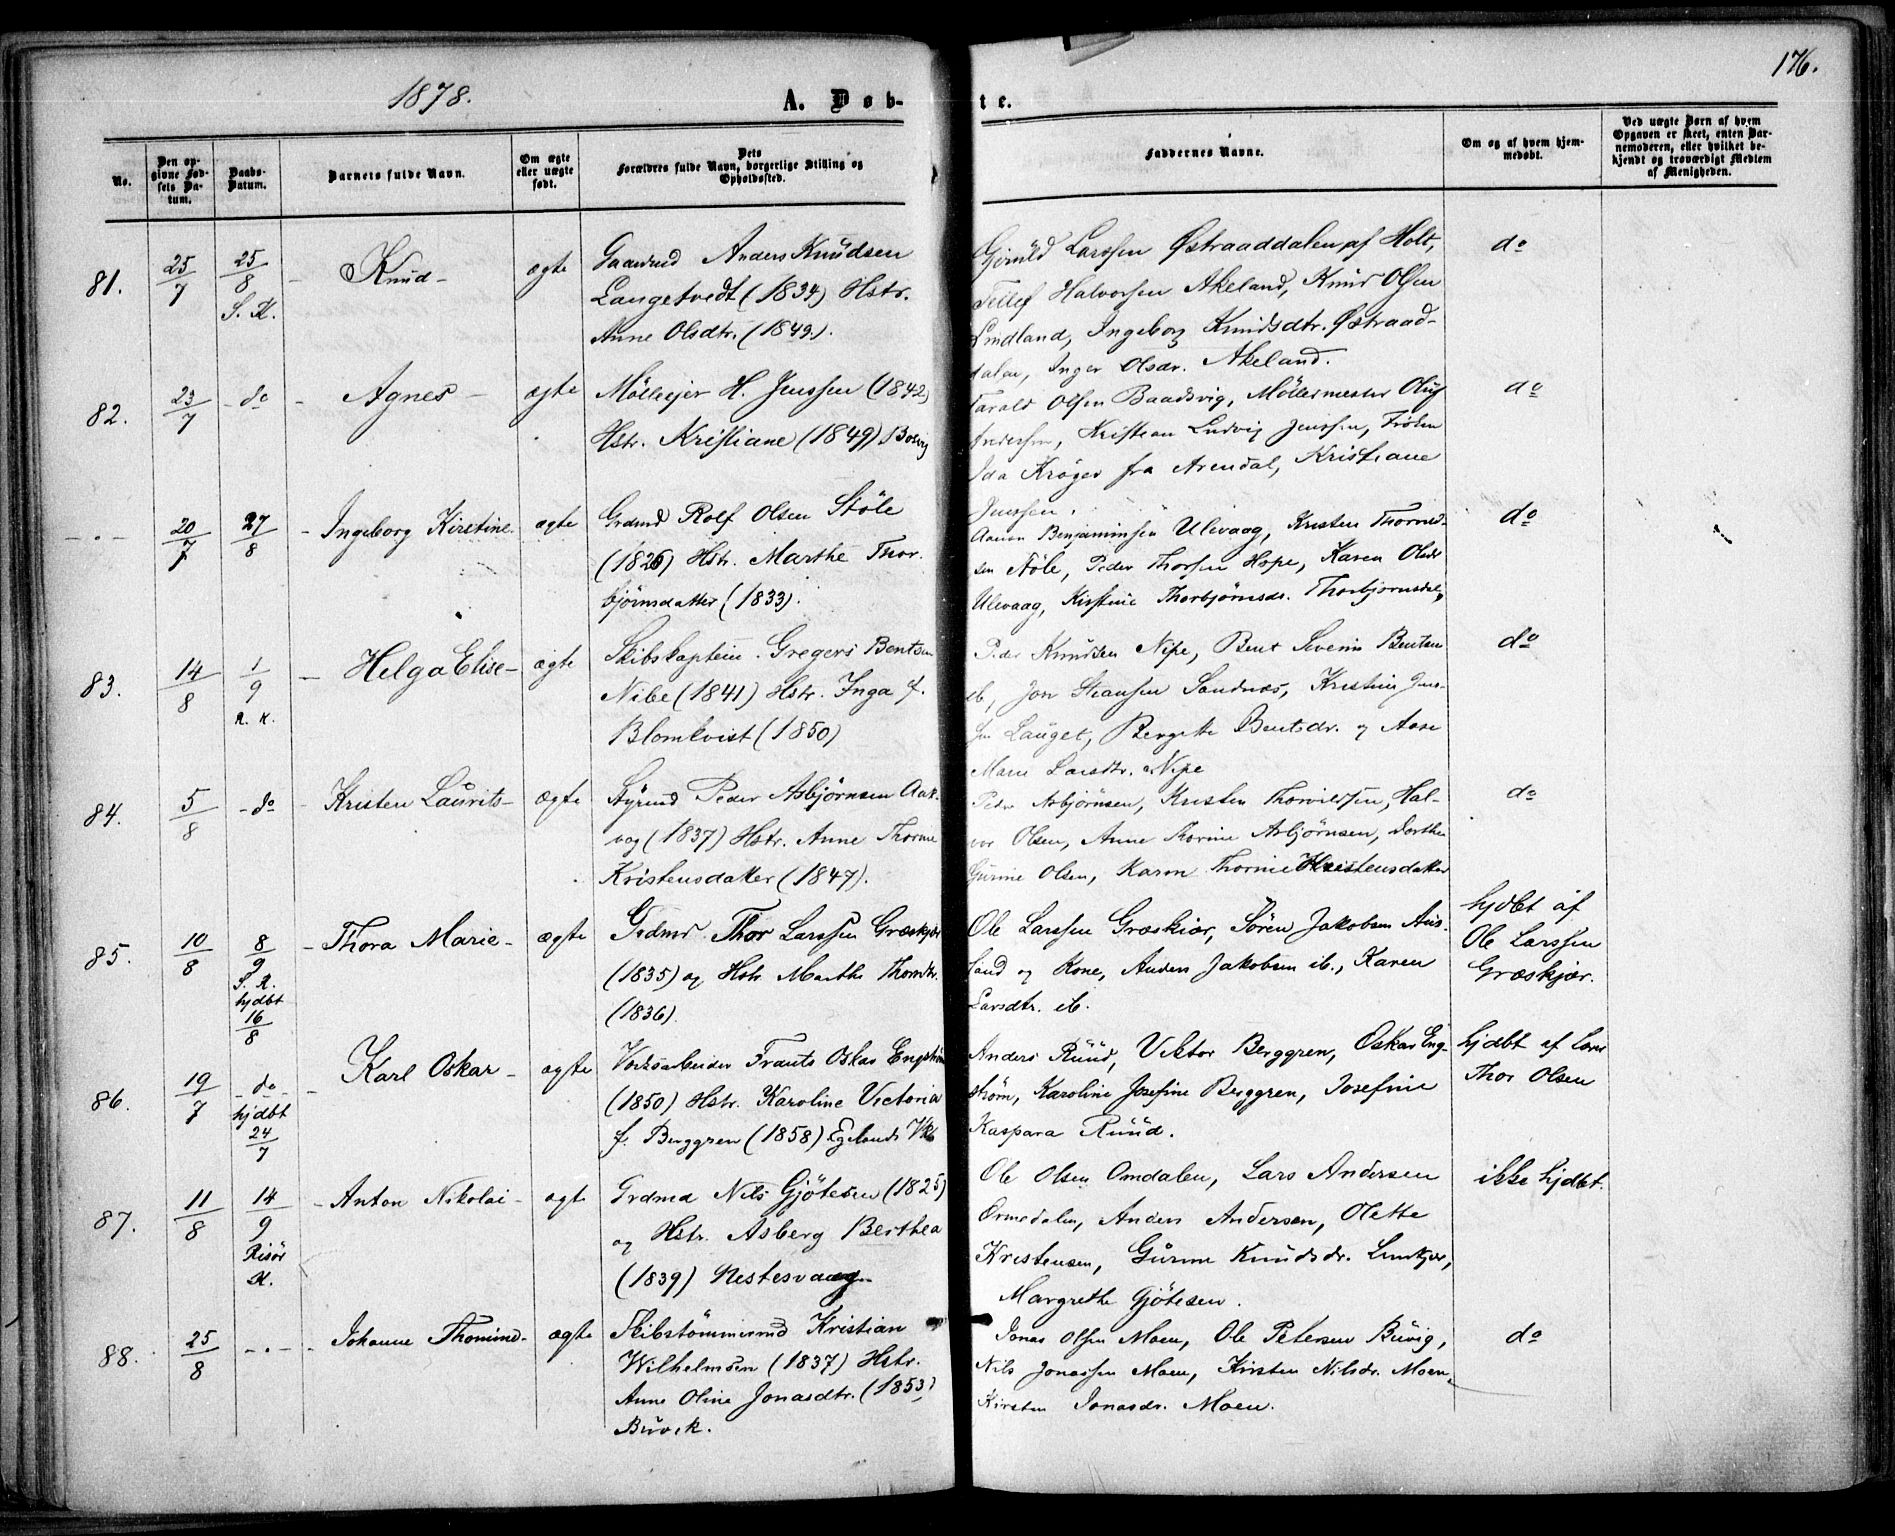 1878.
A. Døb-
No.
Den opgivne Fødsels Datum.
Daabs-Datum.
Barnets fulde Navn.
Om ægte eller uægte født.
Dets Forældres fulde Navn, borgerlige Stilling og Opholdssted.
81.
25/7
25/8
S. K.
Knud
ægte
Gaardmd Anders Knudsen
Langetvedt (1834) Hstr.
Anne Olsdtr. (1849).
82.
23/7
do
Agnes
ægte
Mølleejer H. Jenssen (1842)
Hstr. Kristiane (1849) Bosvig
20/7
27/8
Ingeborg Kirstine
ægte
Grdmd Rolf Olsen Støle
(1826) Hstr. Marthe Thor-
bjørnsdatter (1833).
83.
14/8
1/9
R. K.
Helga Elise
ægte
Skibskaptein Gregers Bentsen
Nibe (1841) Hstr. Inga f.
Blomkvist (1850)
84.
5/8
do
Kristen Laurits
ægte
Styrmd Peder Asbjørnsen Aak-
vag (1837) Hstr. Anne Thorine
Kristensdatter (1847).
85.
10/8
8/9
S. K.
hjdbt
16/8
Thora Marie
ægte
Grdmd Thor Larssen Græskjær
(1835) og Hstr Marthe Thorsdtr.
(1836).
86.
19/7
do
hjdbt
24/7
Karl Oskar
ægte
Værksarbeider Frants Oskar Engstrøm
(1850) Hstr. Karoline Victoria
f. Berggren (1858) Egelands Vrk
87.
11/8
14/9
Risør
K.
Anton Nikolai
ægte
Grdmd Nils Gjøtesen (1825)
og Hstr. Asberg Berthea
(1839) Nestesvaag
88.
25/8
Johanne Thomine
ægte
Skibstømmermd Kristian
Wilhelmsen (1837) Hstr.
Anne Oline Jonasdtr. (1853)
Buvik.
176.
te.
Faddernes Navne.
Om og af hvem hjemmedøbt.
Ved uægte Børn af hvem Opgaven er skeet, enten Barnemoderen, eller hvilket bekjendt og troværdigt Medlem af Menigheden.
Gjeruld Larssen Østraaddalen af Holt,
Tellef Halvorsen Akeland, Knud Olsen
Lindland, Ingeborg Knudsdtr. Østraad-
dalen, Inger Olsdr. Akeland.
do
Tarald Olsen Baadsvig, Møllermester Oluf
Andersen, Kristian Ludvig Jenssen, Frøken
Ida Krøger fra Arendal, Kristiane
Jenssen.
do
Aanon Benjaminsen Ulevaag, Kristen Thormod-
sen Støle, Peder Thorsen Hope, Karen Olsdr
Ulevaag, Kirstine Thorbjørnsdr. Thorbjornsdal,
do
Peder Knudsen Nipe, Bent Severin Bentsen
ib, Jon Steansen Sandnæs, Kristine Jens-
sen Lauget, Bergette Bentsdr. og Aase
Marie Larsdtr. Nipe
do
Peder Asbjørnsen, Kristen Thorvildsen, Hal-
vor Olsen, Anne Thorine Asbjørnsen, Dorthea
Gurine Olsen, Karen Thorine Kristensdatter
do
Ole Larssen Græskiær, Søren Jakobsen Aus-
land og Kone, Anders Jakobsen ib., Karen
Larsdtr. ib.
hjdbt af
Ole Larssen
Græskjær.
Anders Ruud, Viktor Berggren, Oskar Eng-
strøm, Karoline Josefine Berggren, Josefine
Kaspara Ruud.
hjdbt af Lærer
Thor Olsen
Ole Olsen Omdalen, Lars Andersen
Ormedalen, Anders Andersen, Olette
Kristensen, Gurine Knudsdr. Lunkjær,
Margrethe Gjøtesen.
ikke hjdbt.
Jonas Olsen Moen, Ole Petersen Buvig,
Nils Jonassen Moen, Kirsten Nilsdr. Moen,
Kirsten Jonasdr. Moen.
do